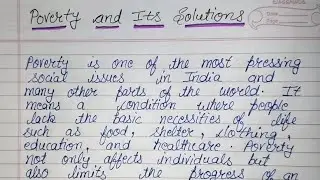 Poverty and Its Solutions
Poverty is one of the most pressing
social issues in India and
many other parts of the world. It
means a condition where people
lack the basic necessities of life
such as food, shelter, clothing,
education, and healthcare. Poverty
not only affects individuals but
also limits the progress of an